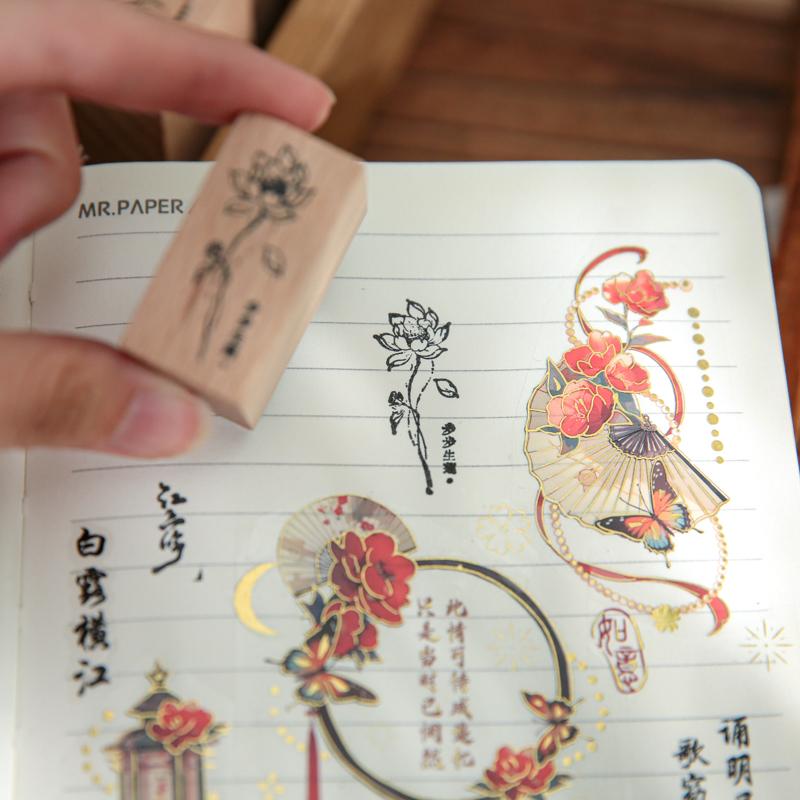 MR.PAPER
步步生莲
白露横江
此情可待成追忆
只是当时已惘然
如意
诵明
歌窈